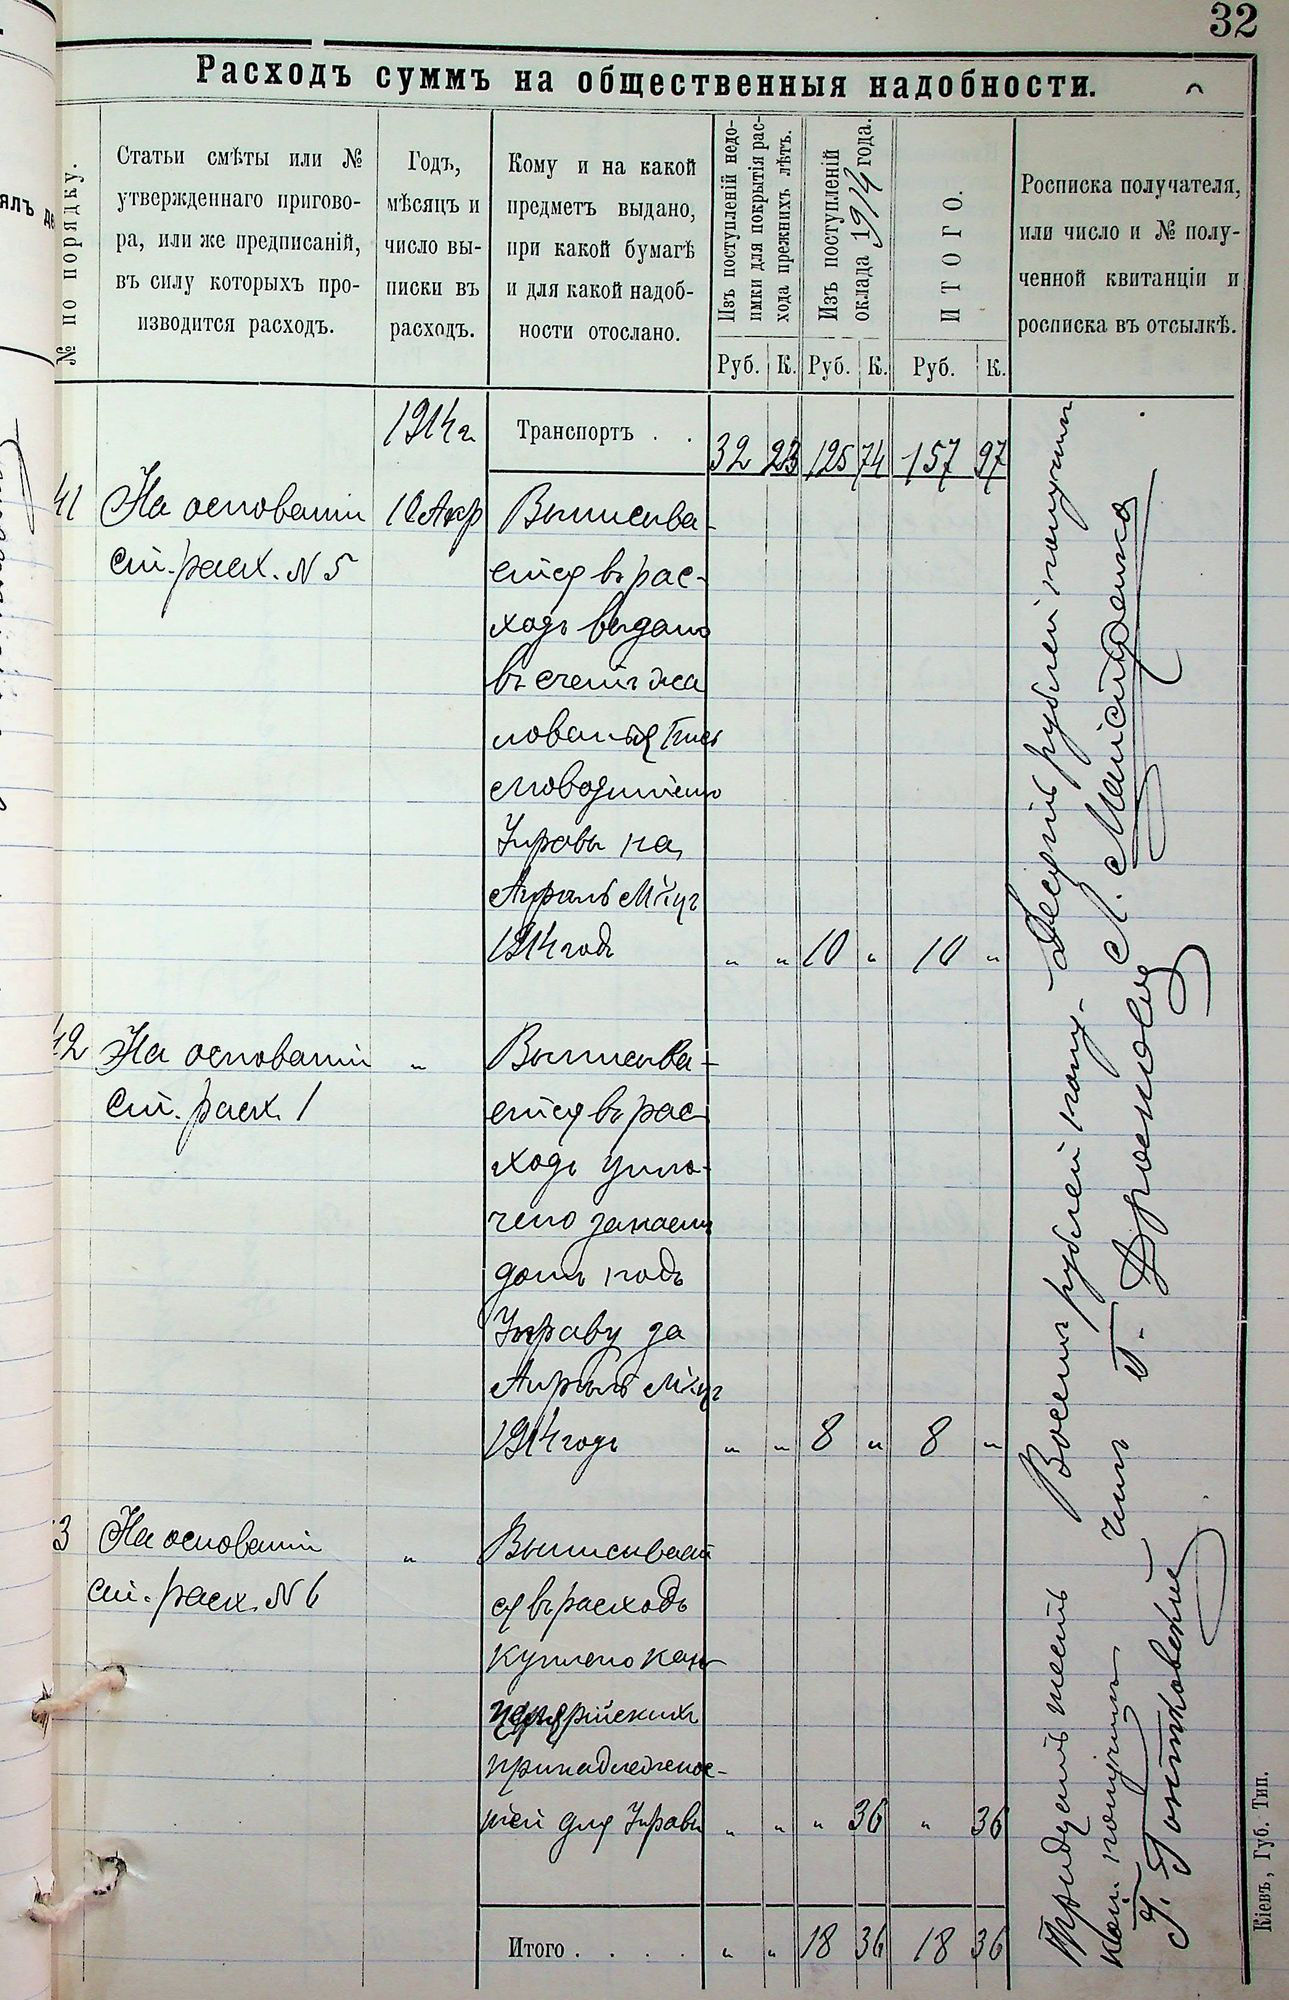 32
Расходъ суммъ на общественныя надобности.
№ по порядку.
Статьи смѣты или №
утвержденнаго пригово-
ра, или же предписаній,
въ силу которыхъ про-
изводится расходъ.
Годъ,
мѣсяцъ и
число вы-
писки въ
расходъ.
Кому и на какой
предметъ выдано,
при какой бумагѣ
и для какой надоб-
ности отослано.
Изъ поступленій недо-
имки для покрытія рас-
хода прежнихъ лѣтъ.
Изъ поступленій
оклада 1914 года.
ИТОГО.
Росписка получателя,
или число и № полу-
ченной квитанціи и
росписка въ отсылкѣ.
Руб. К. Руб. К. Руб. К.
1914 г. Транспортъ . . 32 23 125 74 157 97
41 На основаніи 10 Апр Выписыва-
ст. расх. N 5 ется въ рас-
ходъ выдано
въ счетъ жа
лованья Пись
моводителю
Управы на
Апрель М-цъ
1914 годъ „ „ 10 „ 10 „
Десять рублей получилъ
Л.
42 На основаніи „ Выписыва-
ст. расх. 1 ется въ рас
ходъ упла-
чено за наемъ
домъ подъ
Управу за
Апрель М-цъ
1914 годъ „ „ 8 „ 8 „
Восемь рублей полу-
чилъ П.
3 На основаніи „ Выписывает
ст. расх. N 6 ся въ расходъ
куплено кан
целярійскихъ
принадлежнос-
тей для Управы „ „ „ 36 „ 36
Тридцать шесть
коп. получилъ
Итого . . . . „ „ 18 36 18 36
Кіевъ, Губ. Тип.